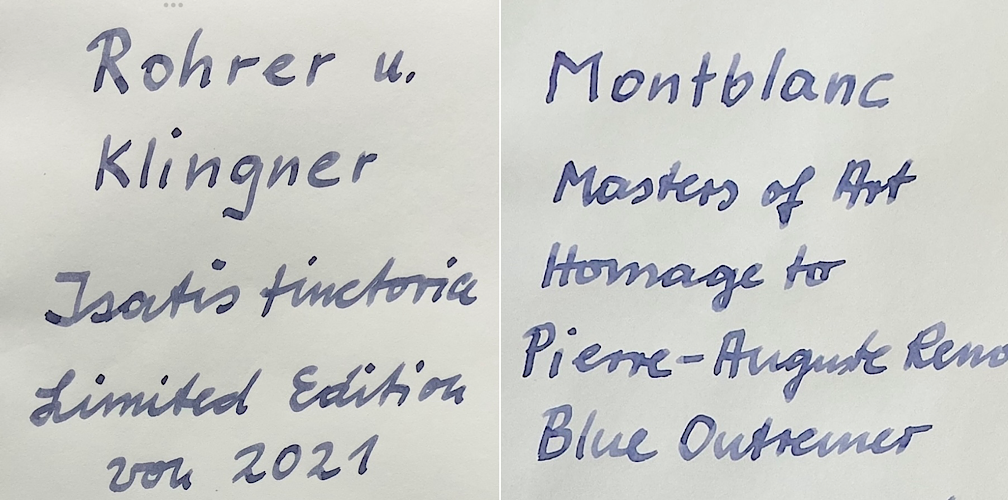 Rohrer u.
Klingner
Isatis tinctoria
Limited Edition
von 2021
Montblanc
Masters of Art
Homage to
Pierre-Auguste Reno
Blue Outremer